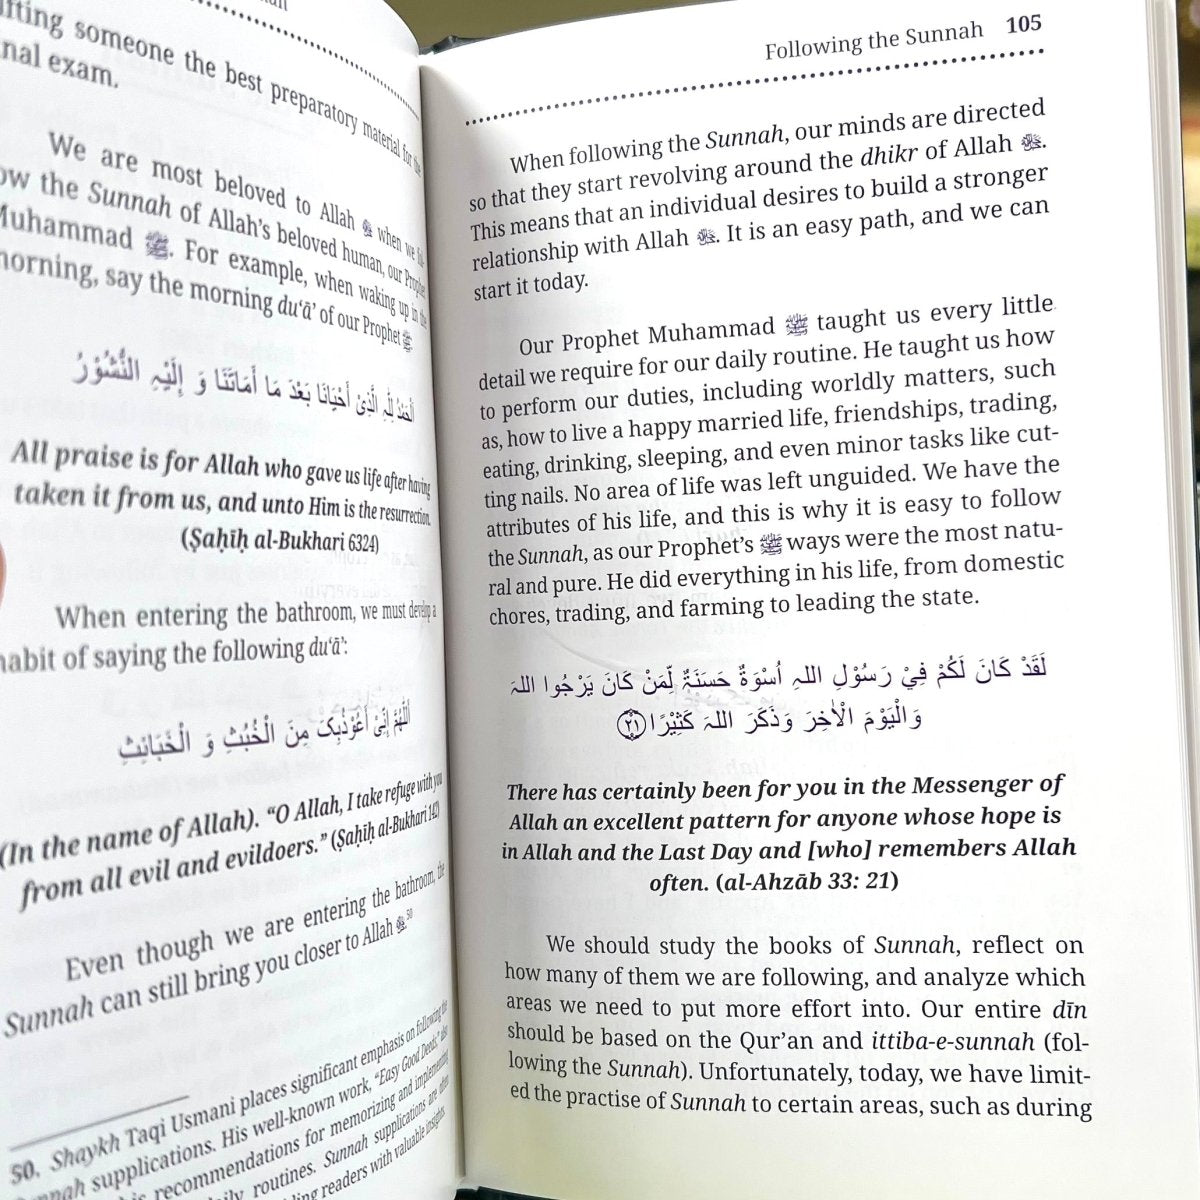 ifting someone the best preparatory material for the
nal exam.
We are most beloved to Allah ﷻ when we fol-
ow the Sunnah of Allah's beloved human, our Prophet
Muhammad ﷺ. For example, when waking up in the
morning, say the morning du‘ā’ of our Prophet ﷺ
اَلْحَمْدُ لِلّٰهِ الَّذِیْ أَحْيَانَا بَعْدَ مَا أَمَاتَنَا وَ إِلَيْهِ النُّشُوْرُ
All praise is for Allah who gave us life after having
taken it from us, and unto Him is the resurrection.
(Ṣaḥīḥ al-Bukhari 6324)
When entering the bathroom, we must develop a
habit of saying the following du‘ā’:
اَللّٰهُمَّ إِنِّیْ أَعُوْذُبِكَ مِنَ الْخُبُثِ وَ الْخَبَائِثِ
(In the name of Allah). “O Allah, I take refuge with you
from all evil and evildoers.” (Ṣaḥīḥ al-Bukhari 142)
Even though we are entering the bathroom, the
Sunnah can still bring you closer to Allah ﷻ.50
50. Shaykh Taqi Usmani places significant emphasis on following the
Sunnah supplications. His well-known work, “Easy Good Deeds,” also
recommendations for memorizing and implementing
routines. Sunnah supplications are often
readers with valuable insights
Following the Sunnah 105
When following the Sunnah, our minds are directed
so that they start revolving around the dhikr of Allah ﷻ.
This means that an individual desires to build a stronger
relationship with Allah ﷻ. It is an easy path, and we can
start it today.
Our Prophet Muhammad ﷺ taught us every little
detail we require for our daily routine. He taught us how
to perform our duties, including worldly matters, such
as, how to live a happy married life, friendships, trading,
eating, drinking, sleeping, and even minor tasks like cut-
ting nails. No area of life was left unguided. We have the
attributes of his life, and this is why it is easy to follow
the Sunnah, as our Prophet’s ﷺ ways were the most natu-
ral and pure. He did everything in his life, from domestic
chores, trading, and farming to leading the state.
لَقَدْ كَانَ لَكُمْ فِيْ رَسُوْلِ اللهِ اُسْوَةٌ حَسَنَةٌ لِّمَنْ كَانَ يَرْجُوا اللهَ
وَالْيَوْمَ الْاٰخِرَ وَذَكَرَ اللهَ كَثِيْرًا ۝٢١
There has certainly been for you in the Messenger of
Allah an excellent pattern for anyone whose hope is
in Allah and the Last Day and [who] remembers Allah
often. (al-Ahzāb 33: 21)
We should study the books of Sunnah, reflect on
how many of them we are following, and analyze which
areas we need to put more effort into. Our entire dīn
should be based on the Qur’an and ittiba-e-sunnah (fol-
lowing the Sunnah). Unfortunately, today, we have limit-
ed the practise of Sunnah to certain areas, such as during